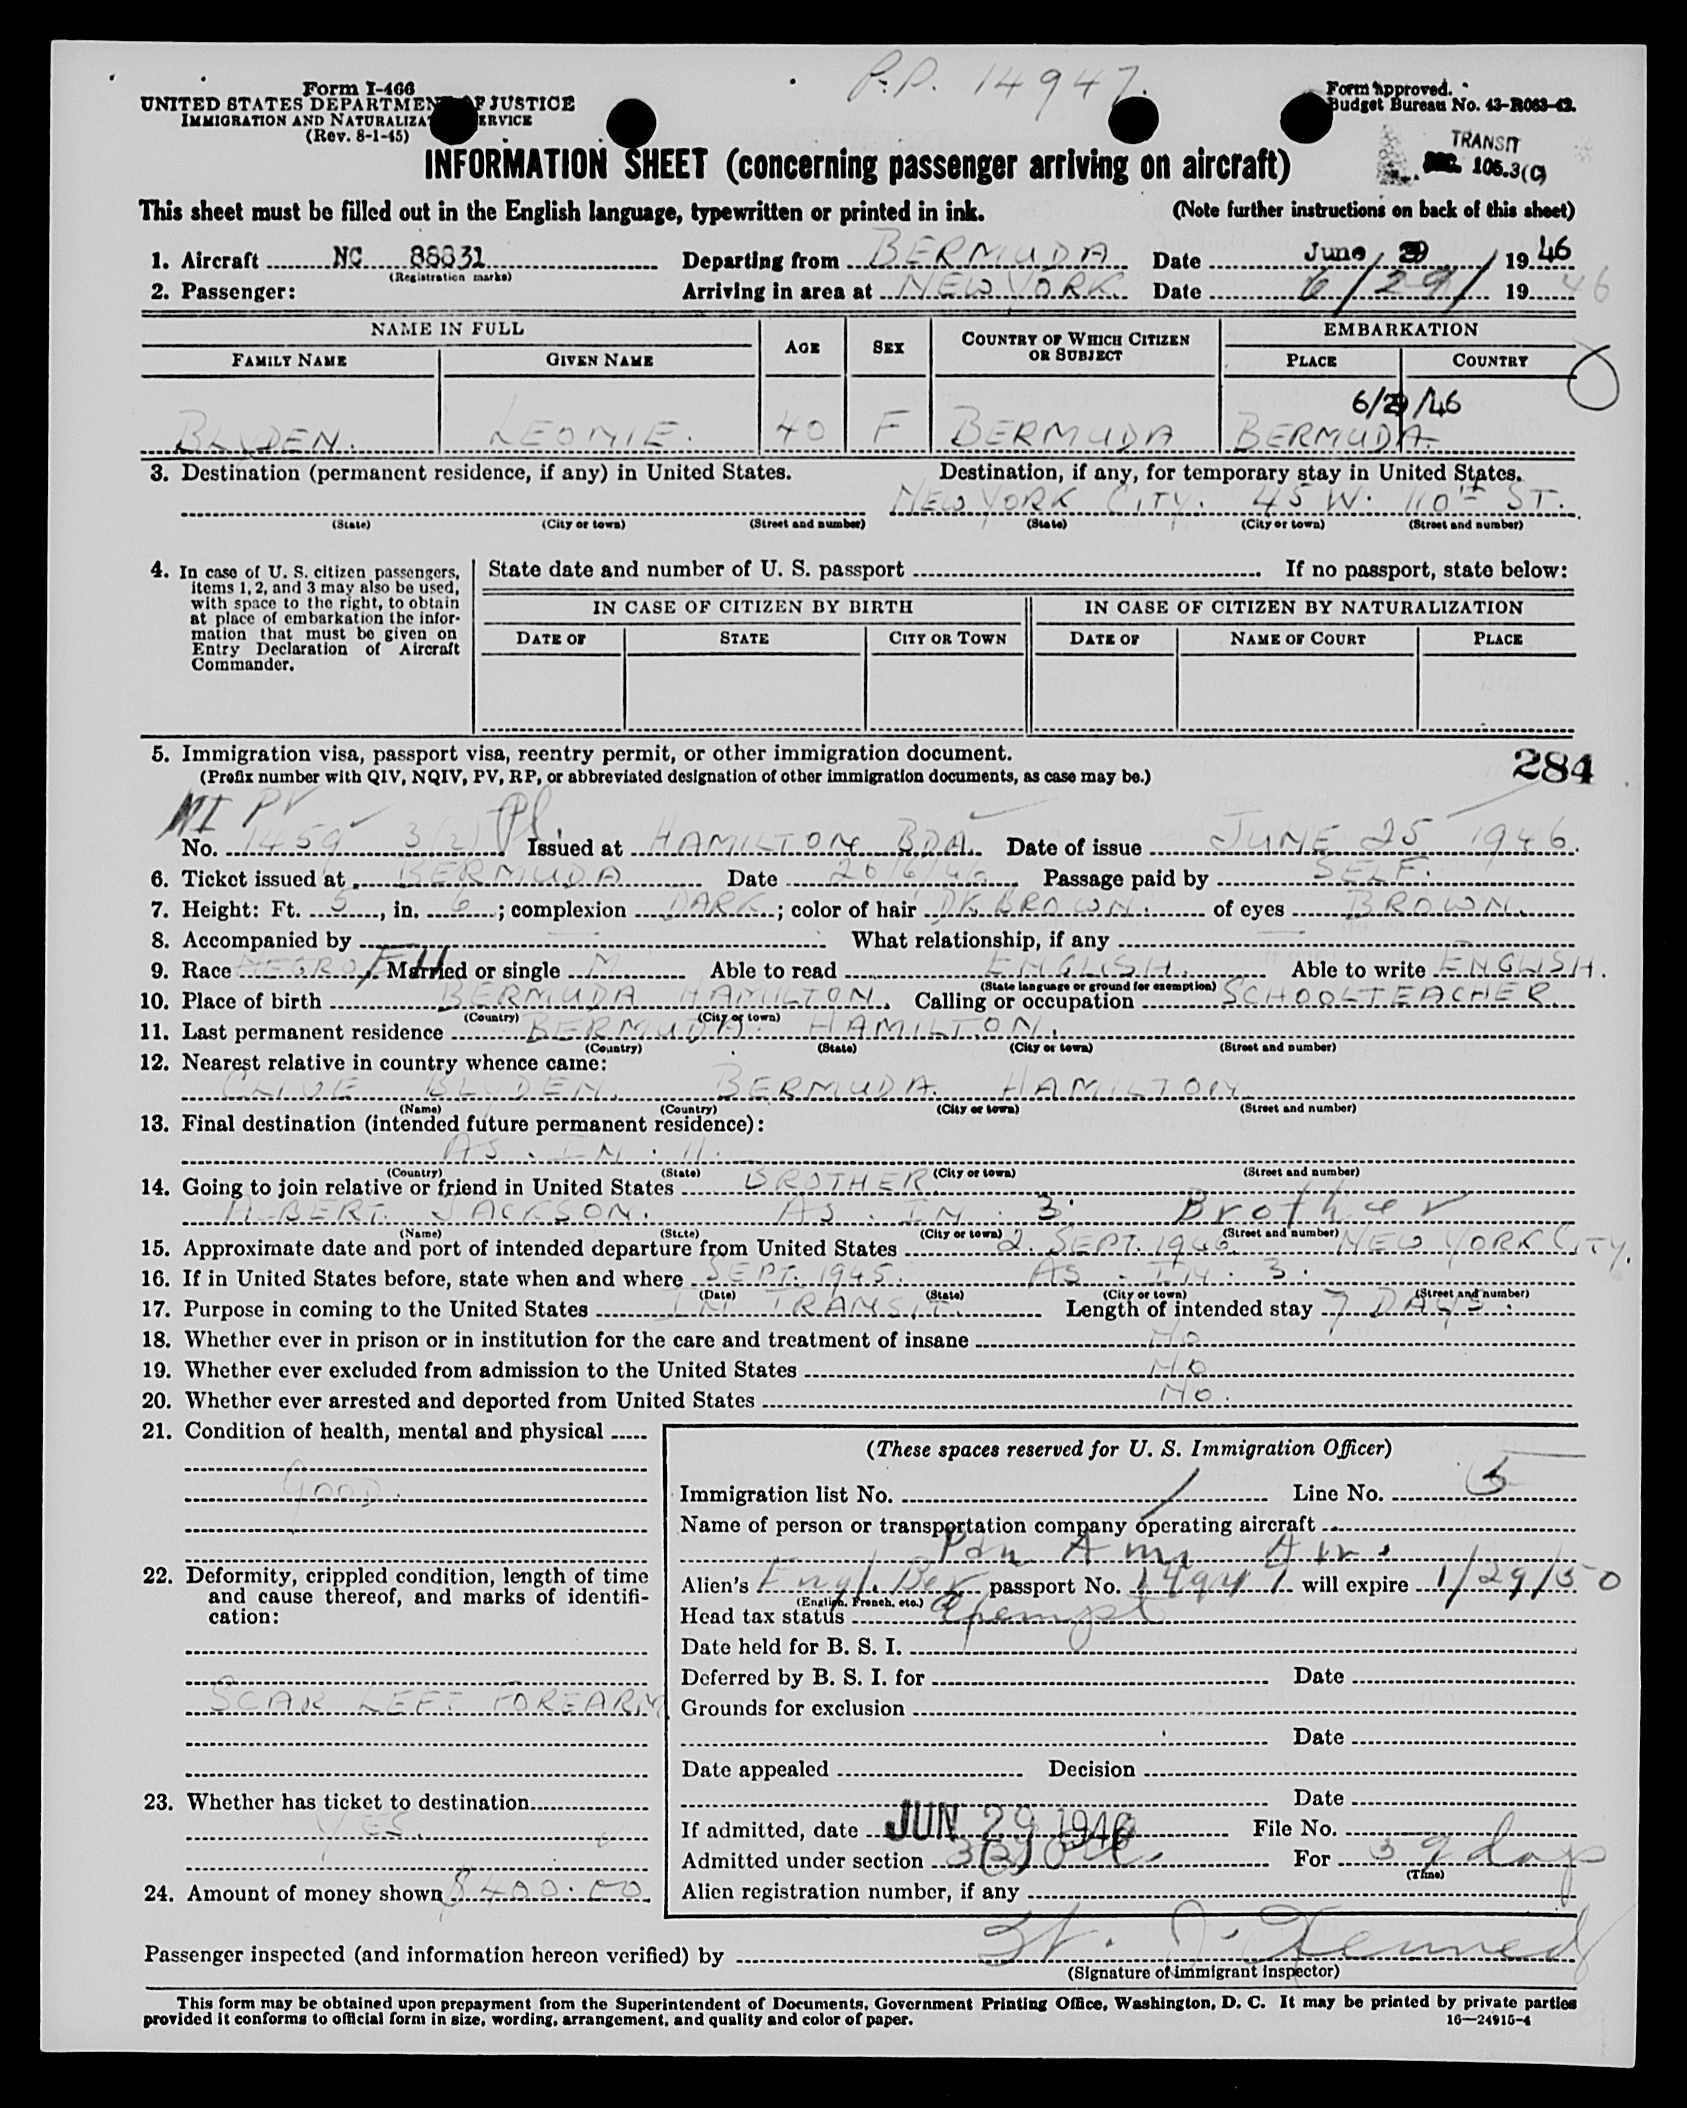 P.P. 14947.
Form I-466
UNITED STATES DEPARTMENT OF JUSTICE
IMMIGRATION AND NATURALIZATION SERVICE
(Rev. 8-1-45)
Form approved.
Budget Bureau No. 43-R063-42.
TRANSIT
SEC. 105.3(C)
INFORMATION SHEET (concerning passenger arriving on aircraft)
This sheet must be filled out in the English language, typewritten or printed in ink. (Note further instructions on back of this sheet)
1. Aircraft NC 88831 Departing from BERMUDA Date June 29 1946
(Registration marks)
2. Passenger: Arriving in area at NEW YORK Date 6/29/ 1946
NAME IN FULL AGE SEX COUNTRY OF WHICH CITIZEN OR SUBJECT EMBARKATION
FAMILY NAME GIVEN NAME PLACE COUNTRY
6/29/46
BLYDEN. LEONIE. 40 F BERMUDA BERMUDA.
3. Destination (permanent residence, if any) in United States. Destination, if any, for temporary stay in United States.
NEW YORK CITY. 45 W. 110th ST.
(State) (City or town) (Street and number) (State) (City or town) (Street and number)
4. In case of U. S. citizen passengers, items 1, 2, and 3 may also be used, with space to the right, to obtain at place of embarkation the information that must be given on Entry Declaration of Aircraft Commander.
State date and number of U. S. passport If no passport, state below:
IN CASE OF CITIZEN BY BIRTH IN CASE OF CITIZEN BY NATURALIZATION
DATE OF STATE CITY OR TOWN DATE OF NAME OF COURT PLACE
5. Immigration visa, passport visa, reentry permit, or other immigration document.
(Prefix number with QIV, NQIV, PV, RP, or abbreviated designation of other immigration documents, as case may be.)
284
NI PV
No. 1459 3(2) Issued at HAMILTON BDA. Date of issue JUNE 25 1946.
6. Ticket issued at BERMUDA Date 20/6/46 Passage paid by SELF.
7. Height: Ft. 5, in. 6; complexion DARK; color of hair DK BROWN. of eyes BROWN.
8. Accompanied by — What relationship, if any —
9. Race NEGRO Married or single M Able to read ENGLISH. Able to write ENGLISH.
(State language or ground for exemption)
10. Place of birth BERMUDA HAMILTON. Calling or occupation SCHOOLTEACHER.
(Country) (City or town)
11. Last permanent residence BERMUDA. HAMILTON.
(Country) (State) (City or town) (Street and number)
12. Nearest relative in country whence came:
CLIVE BLYDEN. BERMUDA. HAMILTON
(Name) (Country) (City or town) (Street and number)
13. Final destination (intended future permanent residence):
AS. IN. 11.
(Country) (State) (City or town) (Street and number)
14. Going to join relative or friend in United States BROTHER
ALBERT. JACKSON. AS. IN. 3. Brother
(Name) (State) (City or town) (Street and number)
15. Approximate date and port of intended departure from United States 2. SEPT. 1946 NEW YORK CITY.
16. If in United States before, state when and where SEPT. 1945. AS. IN. 3.
(Date) (State) (City or town) (Street and number)
17. Purpose in coming to the United States IN TRANSIT. Length of intended stay 7 DAYS.
18. Whether ever in prison or in institution for the care and treatment of insane No
19. Whether ever excluded from admission to the United States No
20. Whether ever arrested and deported from United States No.
21. Condition of health, mental and physical
GOOD.
22. Deformity, crippled condition, length of time and cause thereof, and marks of identification:
SCAR LEFT FOREARM
23. Whether has ticket to destination
YES.
24. Amount of money shown $400.00
(These spaces reserved for U. S. Immigration Officer)
Immigration list No. 1 Line No. 5
Name of person or transportation company operating aircraft
Pan Am Air.
Alien's Engl. Ber passport No. 14947 will expire 1/29/50
(English, French, etc.)
Head tax status Exempt
Date held for B. S. I.
Deferred by B. S. I. for Date
Grounds for exclusion
Date
Date appealed Decision
Date
If admitted, date JUN 29 1946 File No.
Admitted under section 3(3) For 39 days
(Time)
Alien registration number, if any
Passenger inspected (and information hereon verified) by
(Signature of immigrant inspector)
This form may be obtained upon prepayment from the Superintendent of Documents, Government Printing Office, Washington, D. C. It may be printed by private parties
provided it conforms to official form in size, wording, arrangement, and quality and color of paper. 16—24915-4